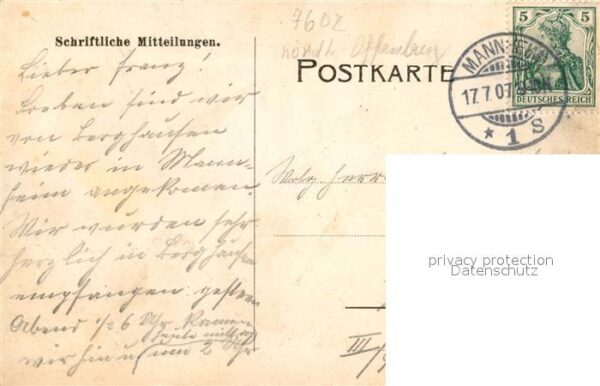 7602
nördl. Offenburg
Schriftliche Mitteilungen.
POSTKARTE
5 5
DEUTSCHES REICH
MANNHEIM
17.7.07
* 1 S
Lieber Franz!
Soeben sind wir
von Berghausen
wieder in Mann-
heim angekomen.
Wir wurden sehr
herzlich in Berghausen
empfangen. gestern
Abend 1/2 6 Uhr kamen
wir hin u. um 2 Uhr
heute
Wolg Herrn
III
privacy protection
Datenschutz